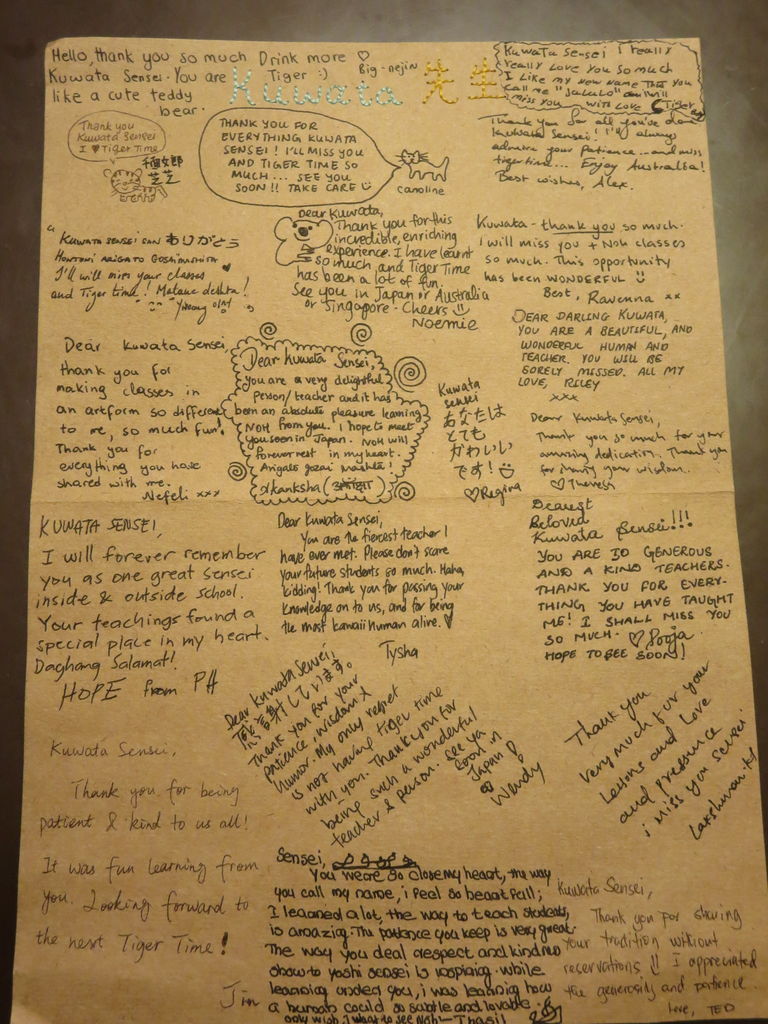 Hello, thank you so much Drink more ♡
Kuwata Sensei. You are Tiger :) Big-nejin
like a cute teddy
bear.
Kuwata 先生
Kuwata Sensei I really
Really Love you so much
I Like my new name that you
call me "Jalulo" and will
miss you with love Tiger
Thank you
Kuwata Sensei
I ♥ Tiger Time
芝芝
THANK YOU FOR
EVERYTHING KUWATA
SENSEI! I'LL MISS YOU
AND TIGER TIME SO
MUCH... SEE YOU
SOON!! TAKE CARE
caroline
Thank you for all you've done
Kuwata Sensei! I'll always
admire your patience... and miss
tiger time... Enjoy Australia!
Best wishes, Alex.
Kuwata Sensei san ありがとう
I'll will miss your classes
and Tiger time! Matane deshta!
Dear Kuwata,
Thank you for this
incredible, enriching
experience. I have learnt
so much, and Tiger Time
has been a lot of fun.
See you in Japan or Australia
or Singapore - Cheers
Noemie
Kuwata - thank you so much.
I will miss you + Noh classes
so much. This opportunity
has been WONDERFUL
Best, Ravenna xx
DEAR DARLING KUWATA,
YOU ARE A BEAUTIFUL, AND
WONDERFUL HUMAN AND
TEACHER. YOU WILL BE
SORELY MISSED. ALL MY
LOVE, RILEY
xxx
Dear Kuwata Sensei,
thank you for
making classes in
an artform so different
to me, so much fun!
Thank you for
everything you have
shared with me.
Nefeli xxx
Dear Kuwata Sensei,
you are a very delightful
person/teacher and it has
been an absolute pleasure learning
NOH from you. I hope to meet
you soon in Japan. NOH will
forever rest in my heart.
Arigato gozai mashta!
Akanksha
Kuwata
sensei
あなたは
とても
かわいい
です!
♡Regina
Dear Kuwata Sensei,
Thank you so much for your
amazing dedication. Thank you
for sharing your wisdom.
♡Theresa
KUWATA SENSEI,
I will forever remember
you as one great Sensei
inside & outside school.
Your teachings found a
special place in my heart.
Daghang Salamat!
HOPE from PH
Dear Kuwata Sensei,
You are the fiercest teacher I
have ever met. Please don't scare
your future students so much. Haha,
kidding! Thank you for passing your
knowledge on to us, and for being
the most kawaii human alive. ♥
Tysha
Dearest
Beloved
Kuwata Sensei!!!
YOU ARE SO GENEROUS
AND A KIND TEACHERS.
THANK YOU FOR EVERY-
THING YOU HAVE TAUGHT
ME! I SHALL MISS YOU
SO MUCH. ♡ Pooja
HOPE TO SEE SOON!
Dear Kuwata Sensei,
感謝しています。
Thank you for your
patience, wisdom &
humor. My only regret
is not having tiger time
with you. Thank you for
being such a wonderful
teacher & person. See ya
soon in
Japan!
Wendy
Thank you
very much for your
Lessons and Love
and pressence
i miss you Sensei
Kuwata Sensei,
Thank you for being
patient & kind to us all!
It was fun learning from
you. Looking forward to
the next Tiger Time!
Jim
Sensei,
You were so close my heart, the way
you call my name, i feel so beautiful;
I learned a lot, the way to teach students,
is amazing. The patience you keep is very great.
The way you deal respect and kindness
show to yoshi sensei is inspiring. while
learning under you, i was learning how
a human could so subtle and lovable.
only wish, I want to see Noh
Kuwata Sensei,
Thank you for sharing
your tradition without
reservations !! I appreciated
the generosity and patience.
Love, TED